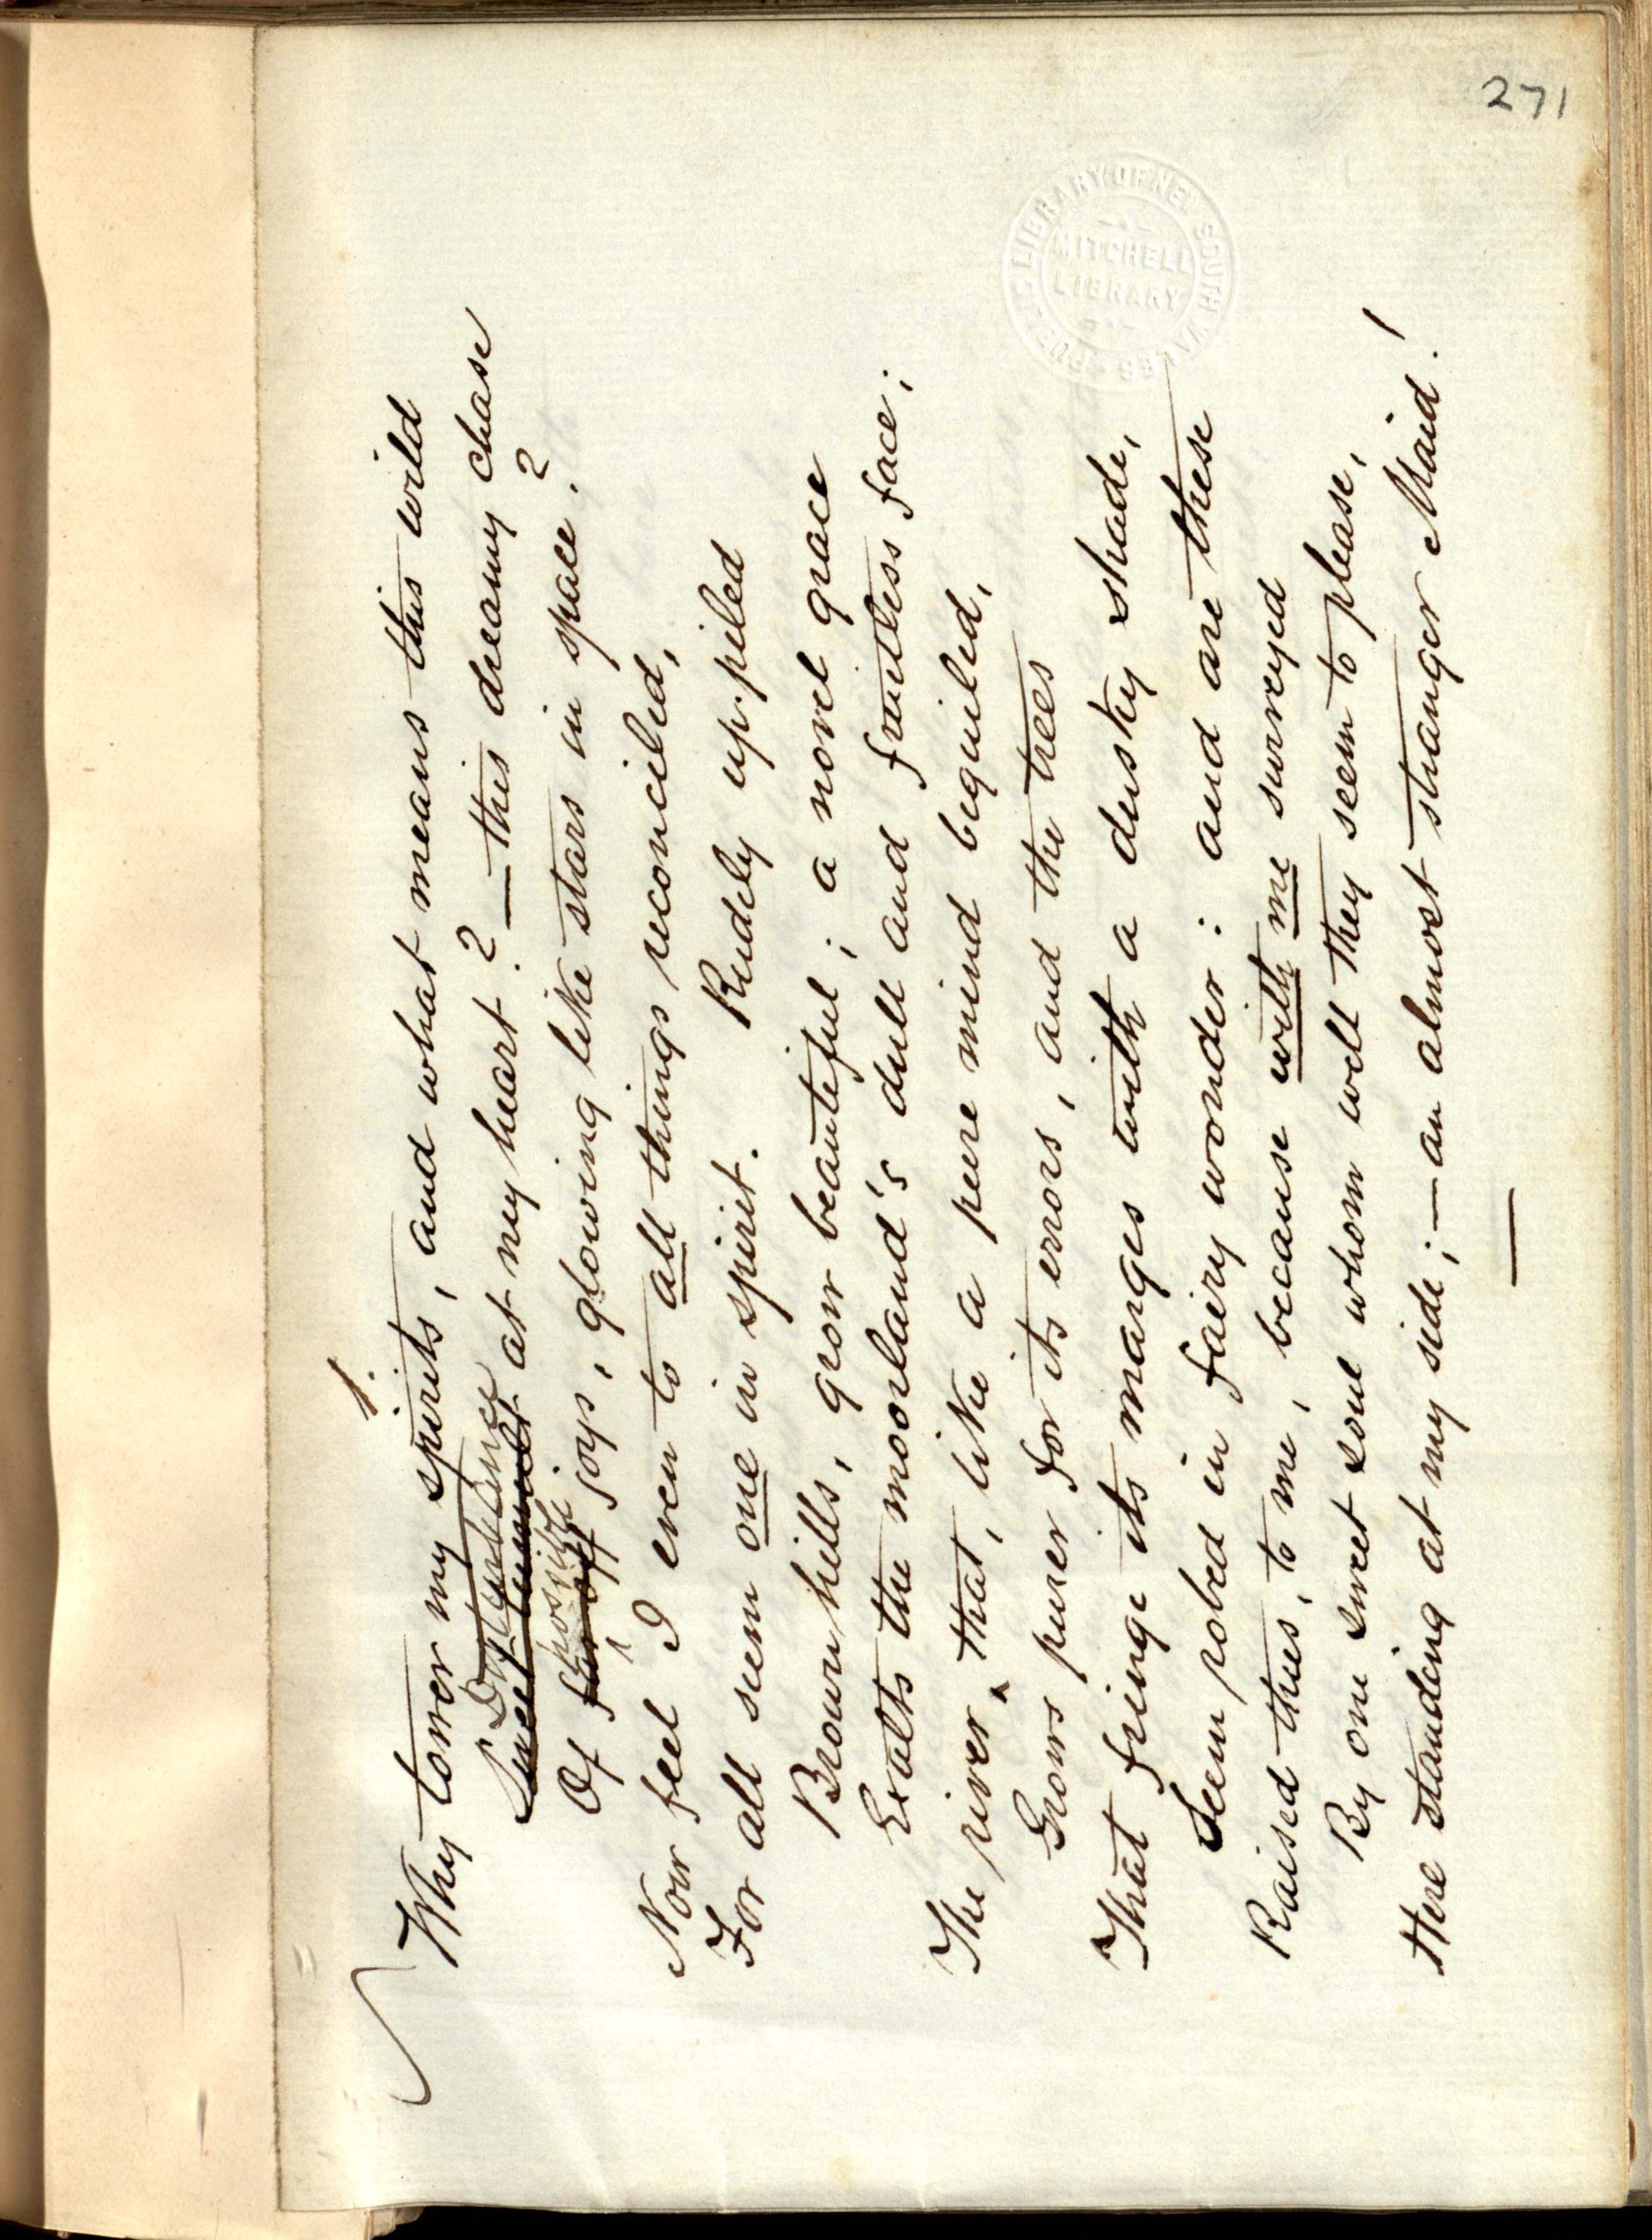 271
1.
Why tower my spirits, and what means this wild
Disturbance
Sweet tumult at my heart? — this dreamy chase
possible
Of far off joys, glowing like stars in space?
Now feel I even to all things reconciled,
For all seem one in spirit. Rudely up-piled
Brown hills, grow beautiful; a novel grace
Exalts the moorland's dull and fruitless face;
The river ^ that, like a pure mind beguiled,
Grows purer for its errors, and the trees
That fringe its marges with a dusky shade,
Seem robed in fairy wonder: and are these
Raised thus, to me, because with me surveyed
By one sweet soul whom well they seem to please,
Here standing at my side; — an almost stranger Maid!
PUBLIC LIBRARY OF NEW SOUTH WALES
MITCHELL
LIBRARY